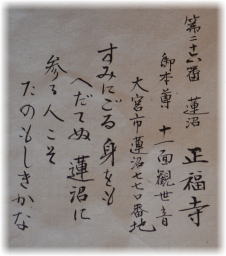 第二十六番 蓮沼 正福寺
御本尊 十一面觀世音
大宮市蓮沼七七〇番地
すみにごる身をも
へだてぬ蓮沼に
参る人こそ
たのもしきかな